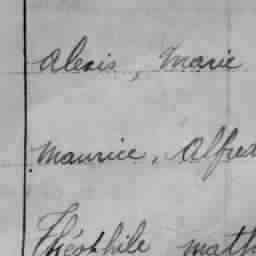 Alexis, Marie
Maurice, Alfred
Théophile Math